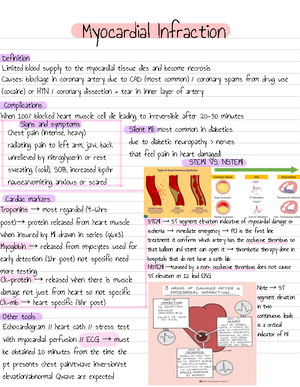 Myocardial Infraction
Definition
Limited blood supply to the myocardial tissue dies and become necrosis
Causes: blockage in coronary artery due to CAD (most common) / coronary spasms from drug use
(cocaine) or HTN / coronary dissection = tear in inner layer of artery
Complications
When 100% blocked heart muscle cell die leading to irreversible after 20-30 minutes
Signs and symptoms
Chest pain (intense, heavy)
radiating pain to left arm, jaw, back
unrelieved by nitroglycerin or rest
sweating (cold), SOB, increased bp/hr
nausea/vomiting, anxious or scared
Silent MI: most common in diabetics
due to diabetic neuropathy > nerves
that feel pain in heart damaged
STEMI VS NSTEMI
Cardiac markers
Troponins → most regarded (4-6hrs
post)→ protein released from heart muscle
when insured by MI drawn in series (q6x3)
Myoglobin → released from myocytes used for
early detection (12hr post) not specific need
more testing
Ck-protein → released when there is muscle
damage not just from heart so not specific
Ck-mb → heart specific (6hr post)
Other tools
Echocardiogram // heart cath // stress test
with myocardial perfusion // ECG → must
be obtained 10 minutes from the time the
pt presents chest pain/twave inversion/st
elevation/abnormal Qwave are expected
STEMI → ST segment elevation indicative of myocardial damage or
ischemia → immediate emergency → PCI is the first line
treatment it confirms which artery has the occlusive thrombus so
that balloon and stent can open it → thrombotic therapy done in
hospitals that do not have a cath lab
NSTEMI → caused by a non-occlusive thrombus does not cause
ST elevation on 12 lead EKG
3 AREAS OF DAMAGE AFTER A
MYOCARDIAL INFARCTION...
Note → ST
segment elevation
in two
continuous leads
is a critical
indicator of MI